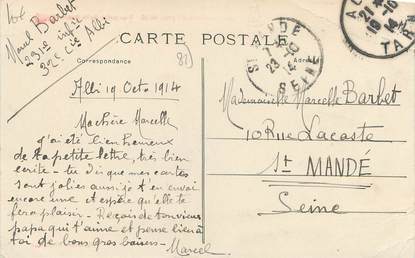 Marcel Barbet
291e infie
32e Cie Albi
CARTE POSTALE
Correspondance
Adresse
(81)
Albi 19 Octo 1914
Ma chère Marcelle
j'ai été bien heureux
de ta petite lettre, très bien
écrite - tu dis que mes cartes
sont jolies aussi je t'en envoi
encore une et espère qu'elle te
fera plaisir - Reçois de ton vieux
papa qui t'aime et pense bien à
toi de bons gros baisers -
Marcel
Mademoiselle Marcelle Barbet
10 Rue Lacaste
St MANDÉ
Seine
SEINE
TAR